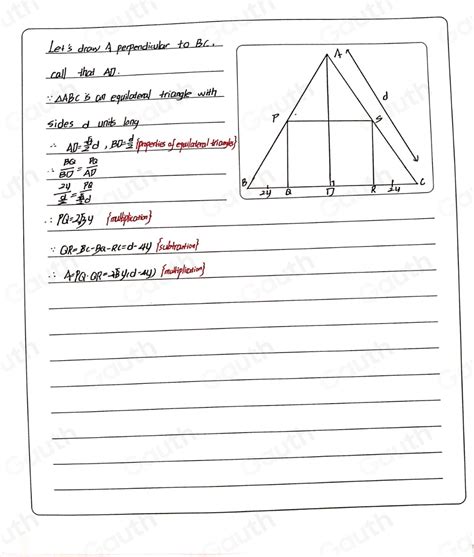 Let's draw A perpendicular to BC,
call that AD.
∵ △ABC is an equilateral triangle with
sides d units long
∴ AD=√3/2 d, BD=d/2 {properties of equilateral triangles}
∴ BQ/BD = PQ/AD
∴ PQ=2√3y {multiplication}
∵ QR=BC-BQ-RC=d-4y {subtraction}
∴ A=PQ·QR=2√3y(d-4y) {multiplication}
A
d
P
S
B
2y
Q
D
R
2y
C
Gauth